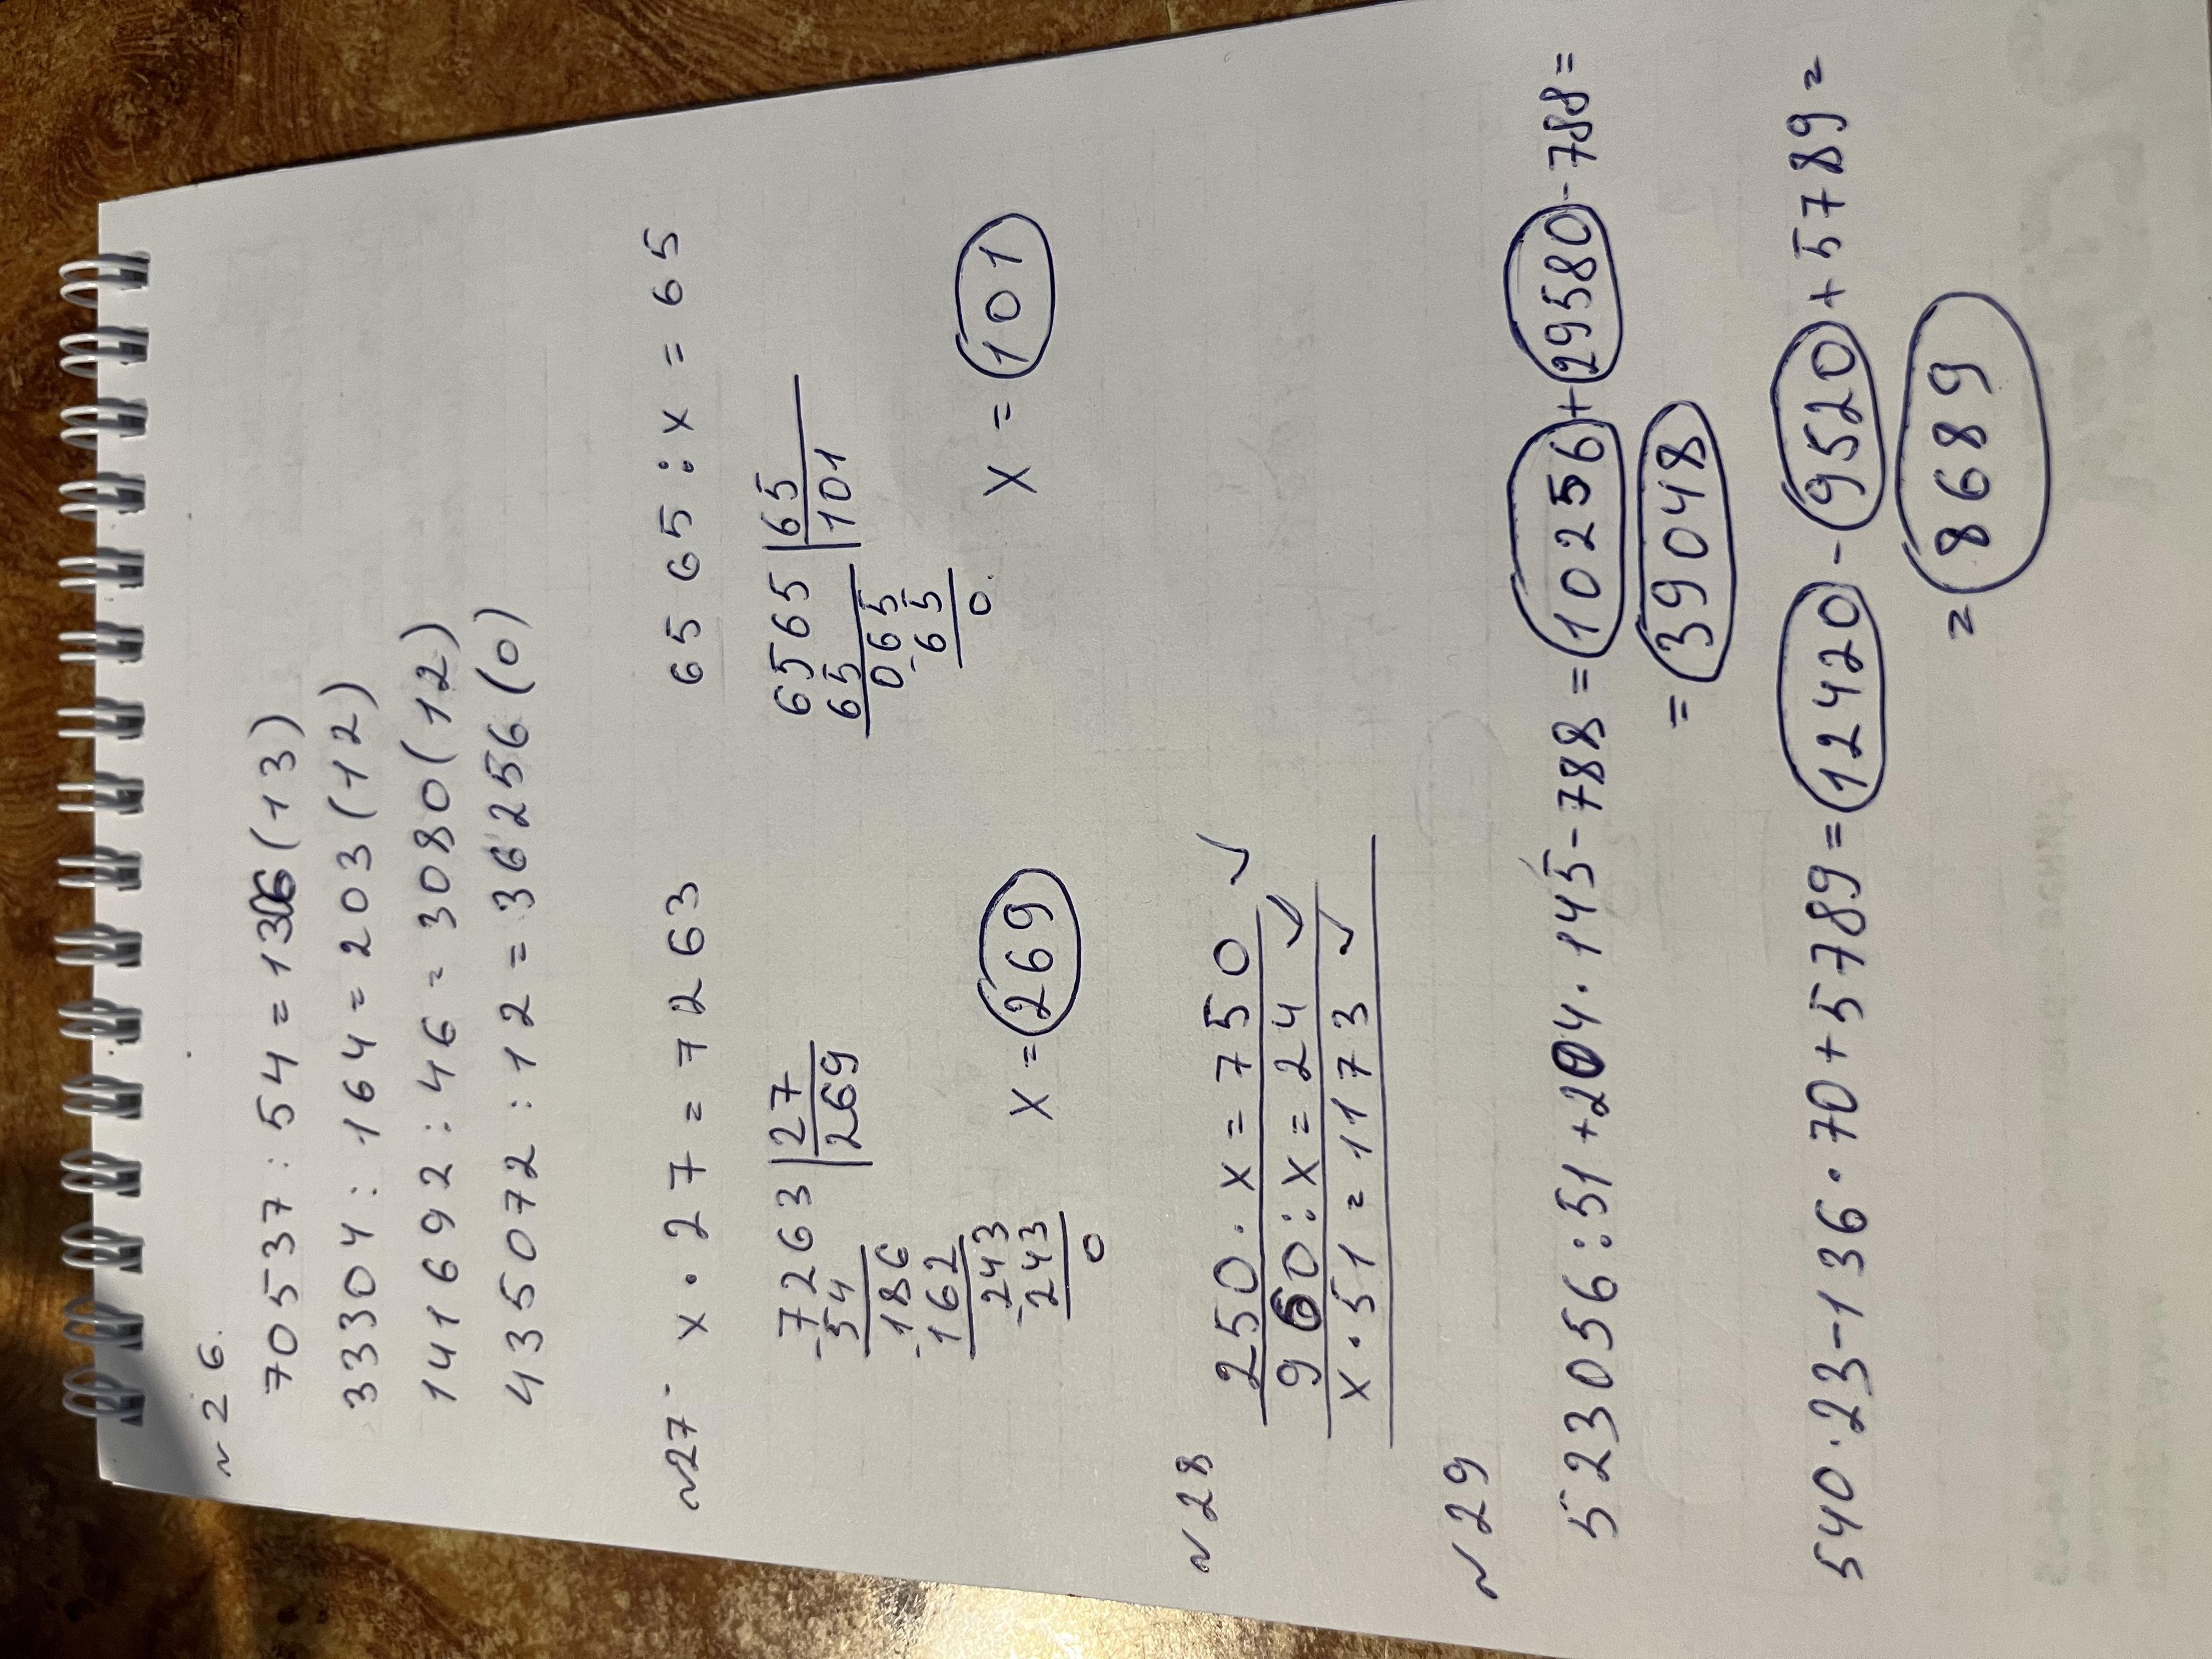 ~26.
70537 : 54 = 1306 (13)
33304 : 164 = 203 (12)
141692 : 46 = 3080 (12)
435072 : 12 = 36256 (0)
~27 x · 27 = 7263 6565 : x = 65
7263 | 27 6565 | 65
-54 269 65 101
186 065
-162 -65
243 0.
-243
0
x = 269 x = 101
~28
250 · x = 750 ✓
960 : x = 24 ✓
x · 51 = 1173 ✓
~29
523056 : 51 + 204 · 145 - 788 = 10256 + 29580 - 788 =
= 39048
540 · 23 - 136 · 70 + 5789 = 12420 - 9520 + 5789 =
= 8689